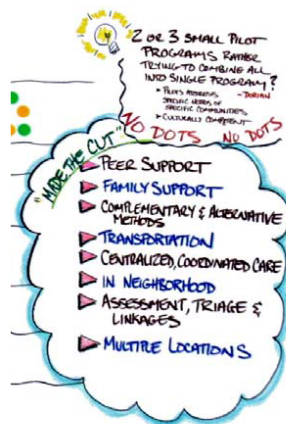 2 OR 3 SMALL PILOT
PROGRAMS RATHER
TRYING TO COMBINE ALL
INTO SINGLE PROGRAM?
• PILOTS ADDRESS - DORIAN
SPECIFIC NEEDS OF
SPECIFIC COMMUNITIES
• CULTURALLY COMPETENT
NO DOTS NO DOTS
"MADE THE CUT"
PEER SUPPORT
FAMILY SUPPORT
COMPLEMENTARY & ALTERNATIVE
METHODS
TRANSPORTATION
CENTRALIZED, COORDINATED CARE
IN NEIGHBORHOOD
ASSESSMENT, TRIAGE &
LINKAGES
MULTIPLE LOCATIONS